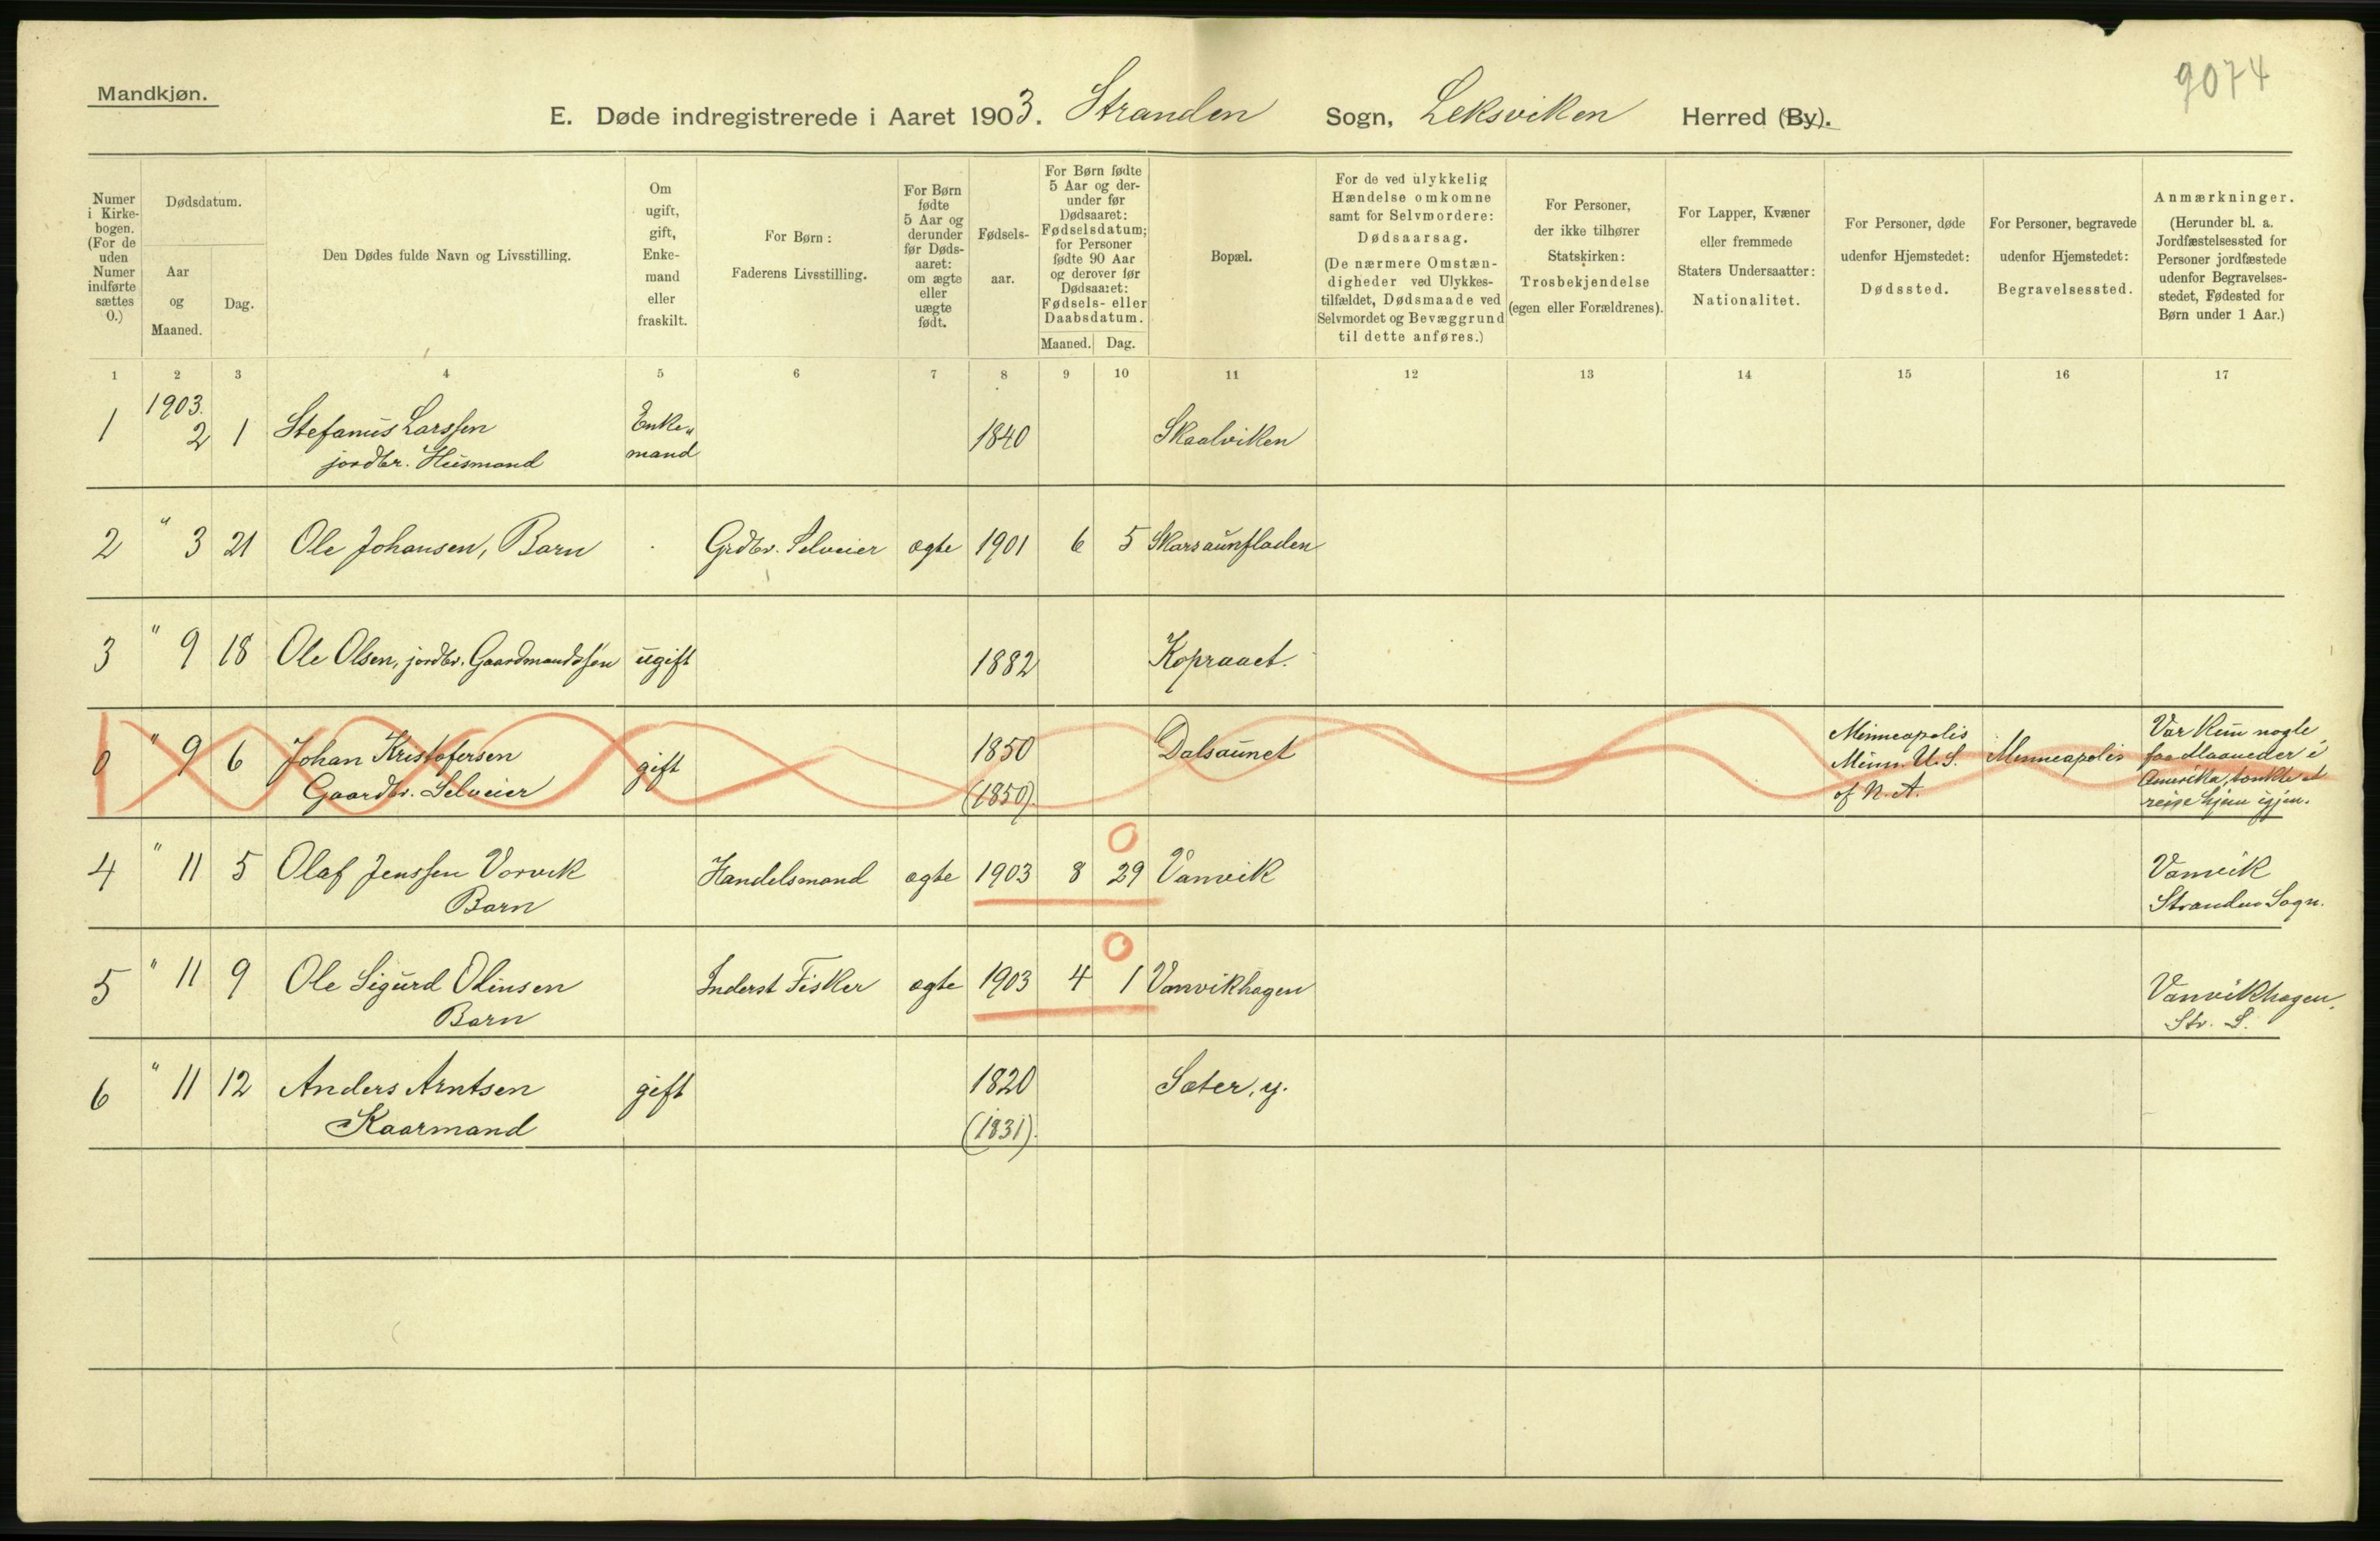 Mandkjøn.
9074
E. Døde indregistrerede i Aaret 1903. Stranden Sogn, Leksviken Herred (By).
Numer i Kirke-bogen. (For de uden Numer indførte sættes 0.)
Dødsdatum.
Aar og Maaned.
Dag.
Den Dødes fulde Navn og Livsstilling.
Om ugift, gift, Enke-mand eller fraskilt.
For Børn: Faderens Livsstilling.
For Børn fødte 5 Aar og derunder før Døds-aaret: om ægte eller uægte født.
Fødsels-aar.
For Børn fødte 5 Aar og der-under før Dødsaaret: Fødselsdatum; for Personer fødte 90 Aar og derover før Dødsaaret: Fødsels- eller Daabsdatum.
Maaned. Dag.
Bopæl.
For de ved ulykkelig Hændelse omkomne samt for Selvmordere: Dødsaarsag. (De nærmere Omstæn-digheder ved Ulykkes-tilfældet, Dødsmaade ved Selvmordet og Bevæggrund til dette anføres.)
For Personer, der ikke tilhører Statskirken: Trosbekjendelse (egen eller Forældrenes).
For Lapper, Kvæner eller fremmede Staters Undersaatter: Nationalitet.
For Personer, døde udenfor Hjemstedet: Dødssted.
For Personer, begravede udenfor Hjemstedet: Begravelsessted.
Anmærkninger. (Herunder bl. a. Jordfæstelsessted for Personer jordfæstede udenfor Begravelses-stedet, Fødested for Børn under 1 Aar.)
1 2 3 4 5 6 7 8 9 10 11 12 13 14 15 16 17
1903.
1 2 1 Stefanus Larssen Enke- 1840 Skaalviken
jordbr. Husmand mand
2 " 3 21 Ole Johansen, Barn Grdbr. Selveier ægte 1901 6 5 Skarsaunfladen
3 " 9 18 Ole Olsen, jordbr. Gaardmandssøn ugift 1882 Kopraaet.
0 " 9 6 Johan Kristofersen gift 1850 Dalsaunet Minneapolis Minneapolis Var kun nogle
Gaardbr. Selveier (1850). Minn. U.S. faa Maaneder i
of N. A. Amerika, tænkte at
reise hjem igjen.
4 " 11 5 Olaf Jenssen Vorvik Handelsmand ægte 1903 8 29 Vanvik Vanvik
Barn Stranden Sogn.
5 " 11 9 Ole Sigurd Odinsen Inderst Fisker ægte 1903 4 1 Vanvikhagen Vanvikhagen,
Barn Str. S.
6 " 11 12 Anders Arntsen gift 1820 Sæter, y.
Kaarmand (1831).